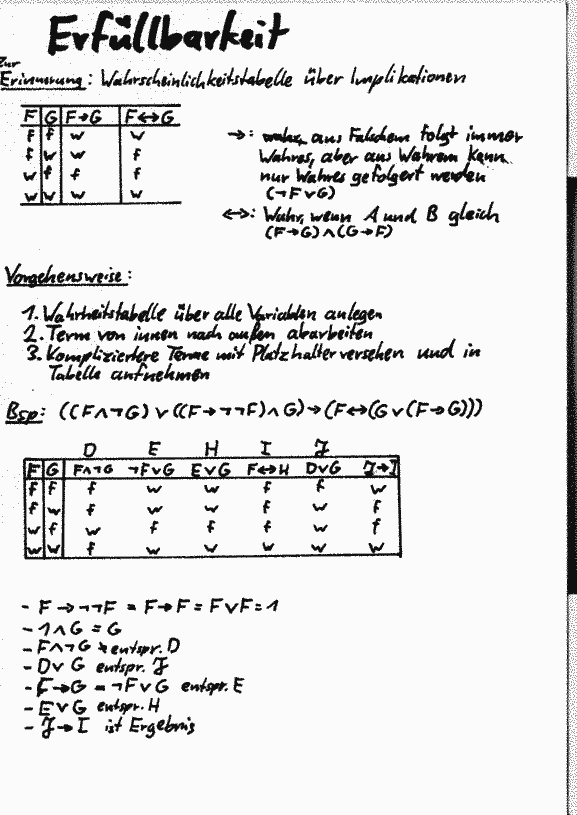 Erfüllbarkeit
Zur
Erinnerung: Wahrscheinlichkeitstabelle über Implikationen
F G F→G F↔G
f f w w
f w w f
w f f f
w w w w
→: wahr, aus Falschem folgt immer
Wahres, aber aus Wahrem kann
nur Wahres gefolgert werden
(¬F∨G)
↔: Wahr, wenn A und B gleich
(F→G)∧(G→F)
Vorgehensweise:
1. Wahrheitstabelle über alle Variablen anlegen
2. Term von innen nach außen abarbeiten
3. Kompliziertere Terme mit Platzhalter versehen und in
Tabelle aufnehmen
Bsp: ((F∧¬G)∨((F→¬¬F)∧G)→(F↔(G∨(F→G)))
D E H I J
F G F∧¬G ¬F∨G E∨G F↔H D∨G J→I
f f f w w f f w
f w f w w f w f
w f w f f f w f
w w f w w w w w
- F→¬¬F = F→F = F∨F = 1
- 1∧G = G
- F∧¬G entspr. D
- D∨G entspr. J
- F→G = ¬F∨G entspr. E
- E∨G entspr. H
- J→I ist Ergebnis